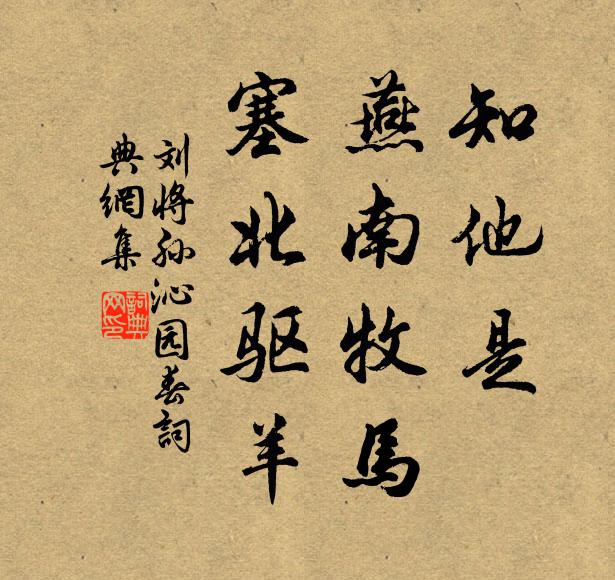 知他是
燕南牧馬
塞北驱羊
刘将孙沁园春詞
典網集
詞典网印